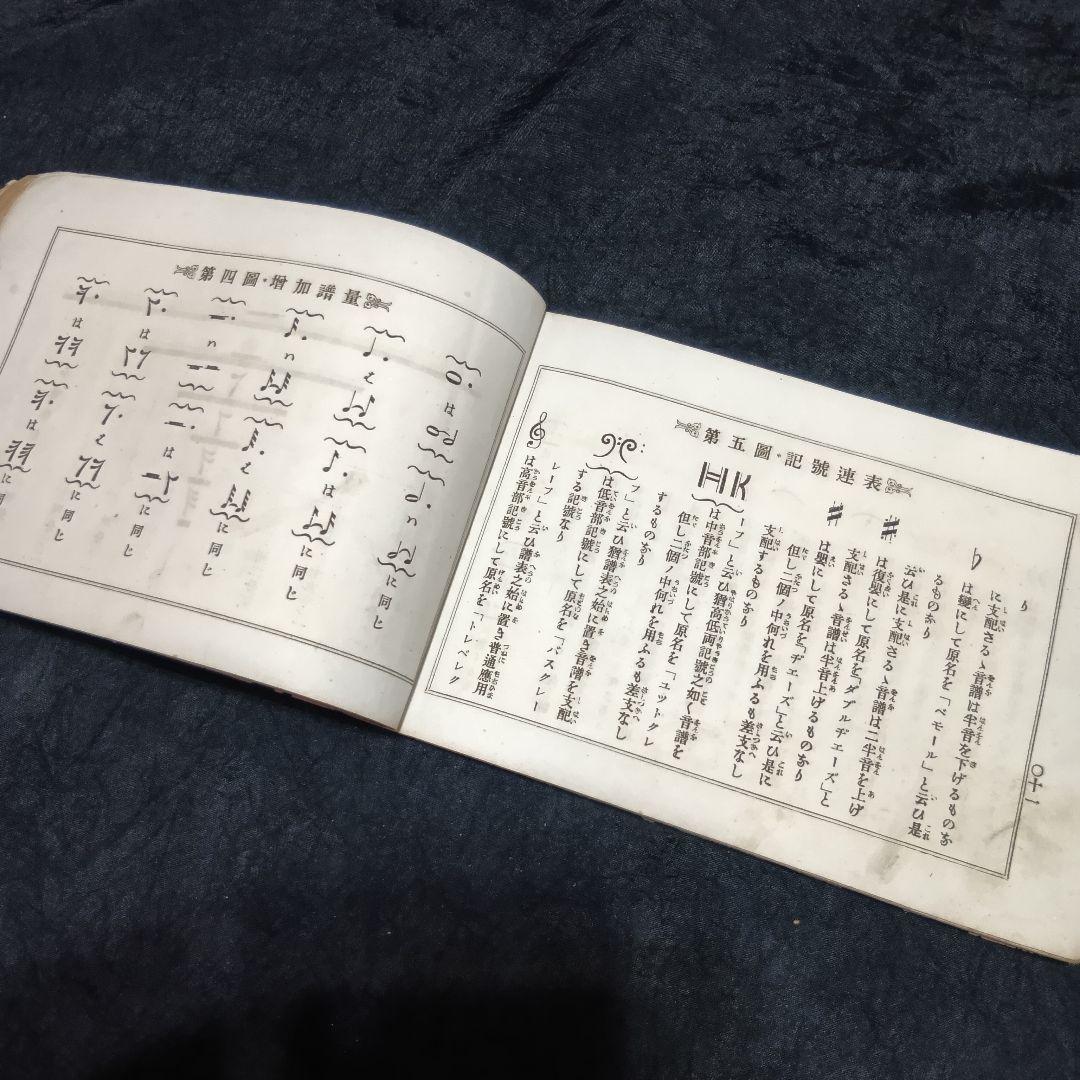 第四圖・增加譜量
は
は
に同ヒ
に同ヒ
は
に同ヒ
に同ヒ
は
に同ヒ
は
に同ヒ
第五圖・記號連表
は高音部記號にして原名を「トレベレク
レーフ」と云ひ譜表之始に置き普通應用
する記號なり
は低音部記號にして原名を「バスクレー
フ」と云ひ猶譜表之始に置き音譜を支配
するものなり
但し二個ノ中何れを用ふるも差支なし
は中音部記號にして原名を「ユットクレ
ーフ」と云ひ猶高低両記號之如く音譜を
支配するものなり
但し二個ノ中何れを用ふるも差支なし
は嬰にして原名を「ヂエーズ」と云ひ是に
支配さるゝ音譜は半音上げるものなり
は復嬰にして原名を「ダブルヂエーズ」と
云ひ是に支配さるゝ音譜は二半音を上げ
るものなり
は變にして原名を「ベモール」と云ひ是
に支配さるゝ音譜は半音を下げるものな
り
〇十一